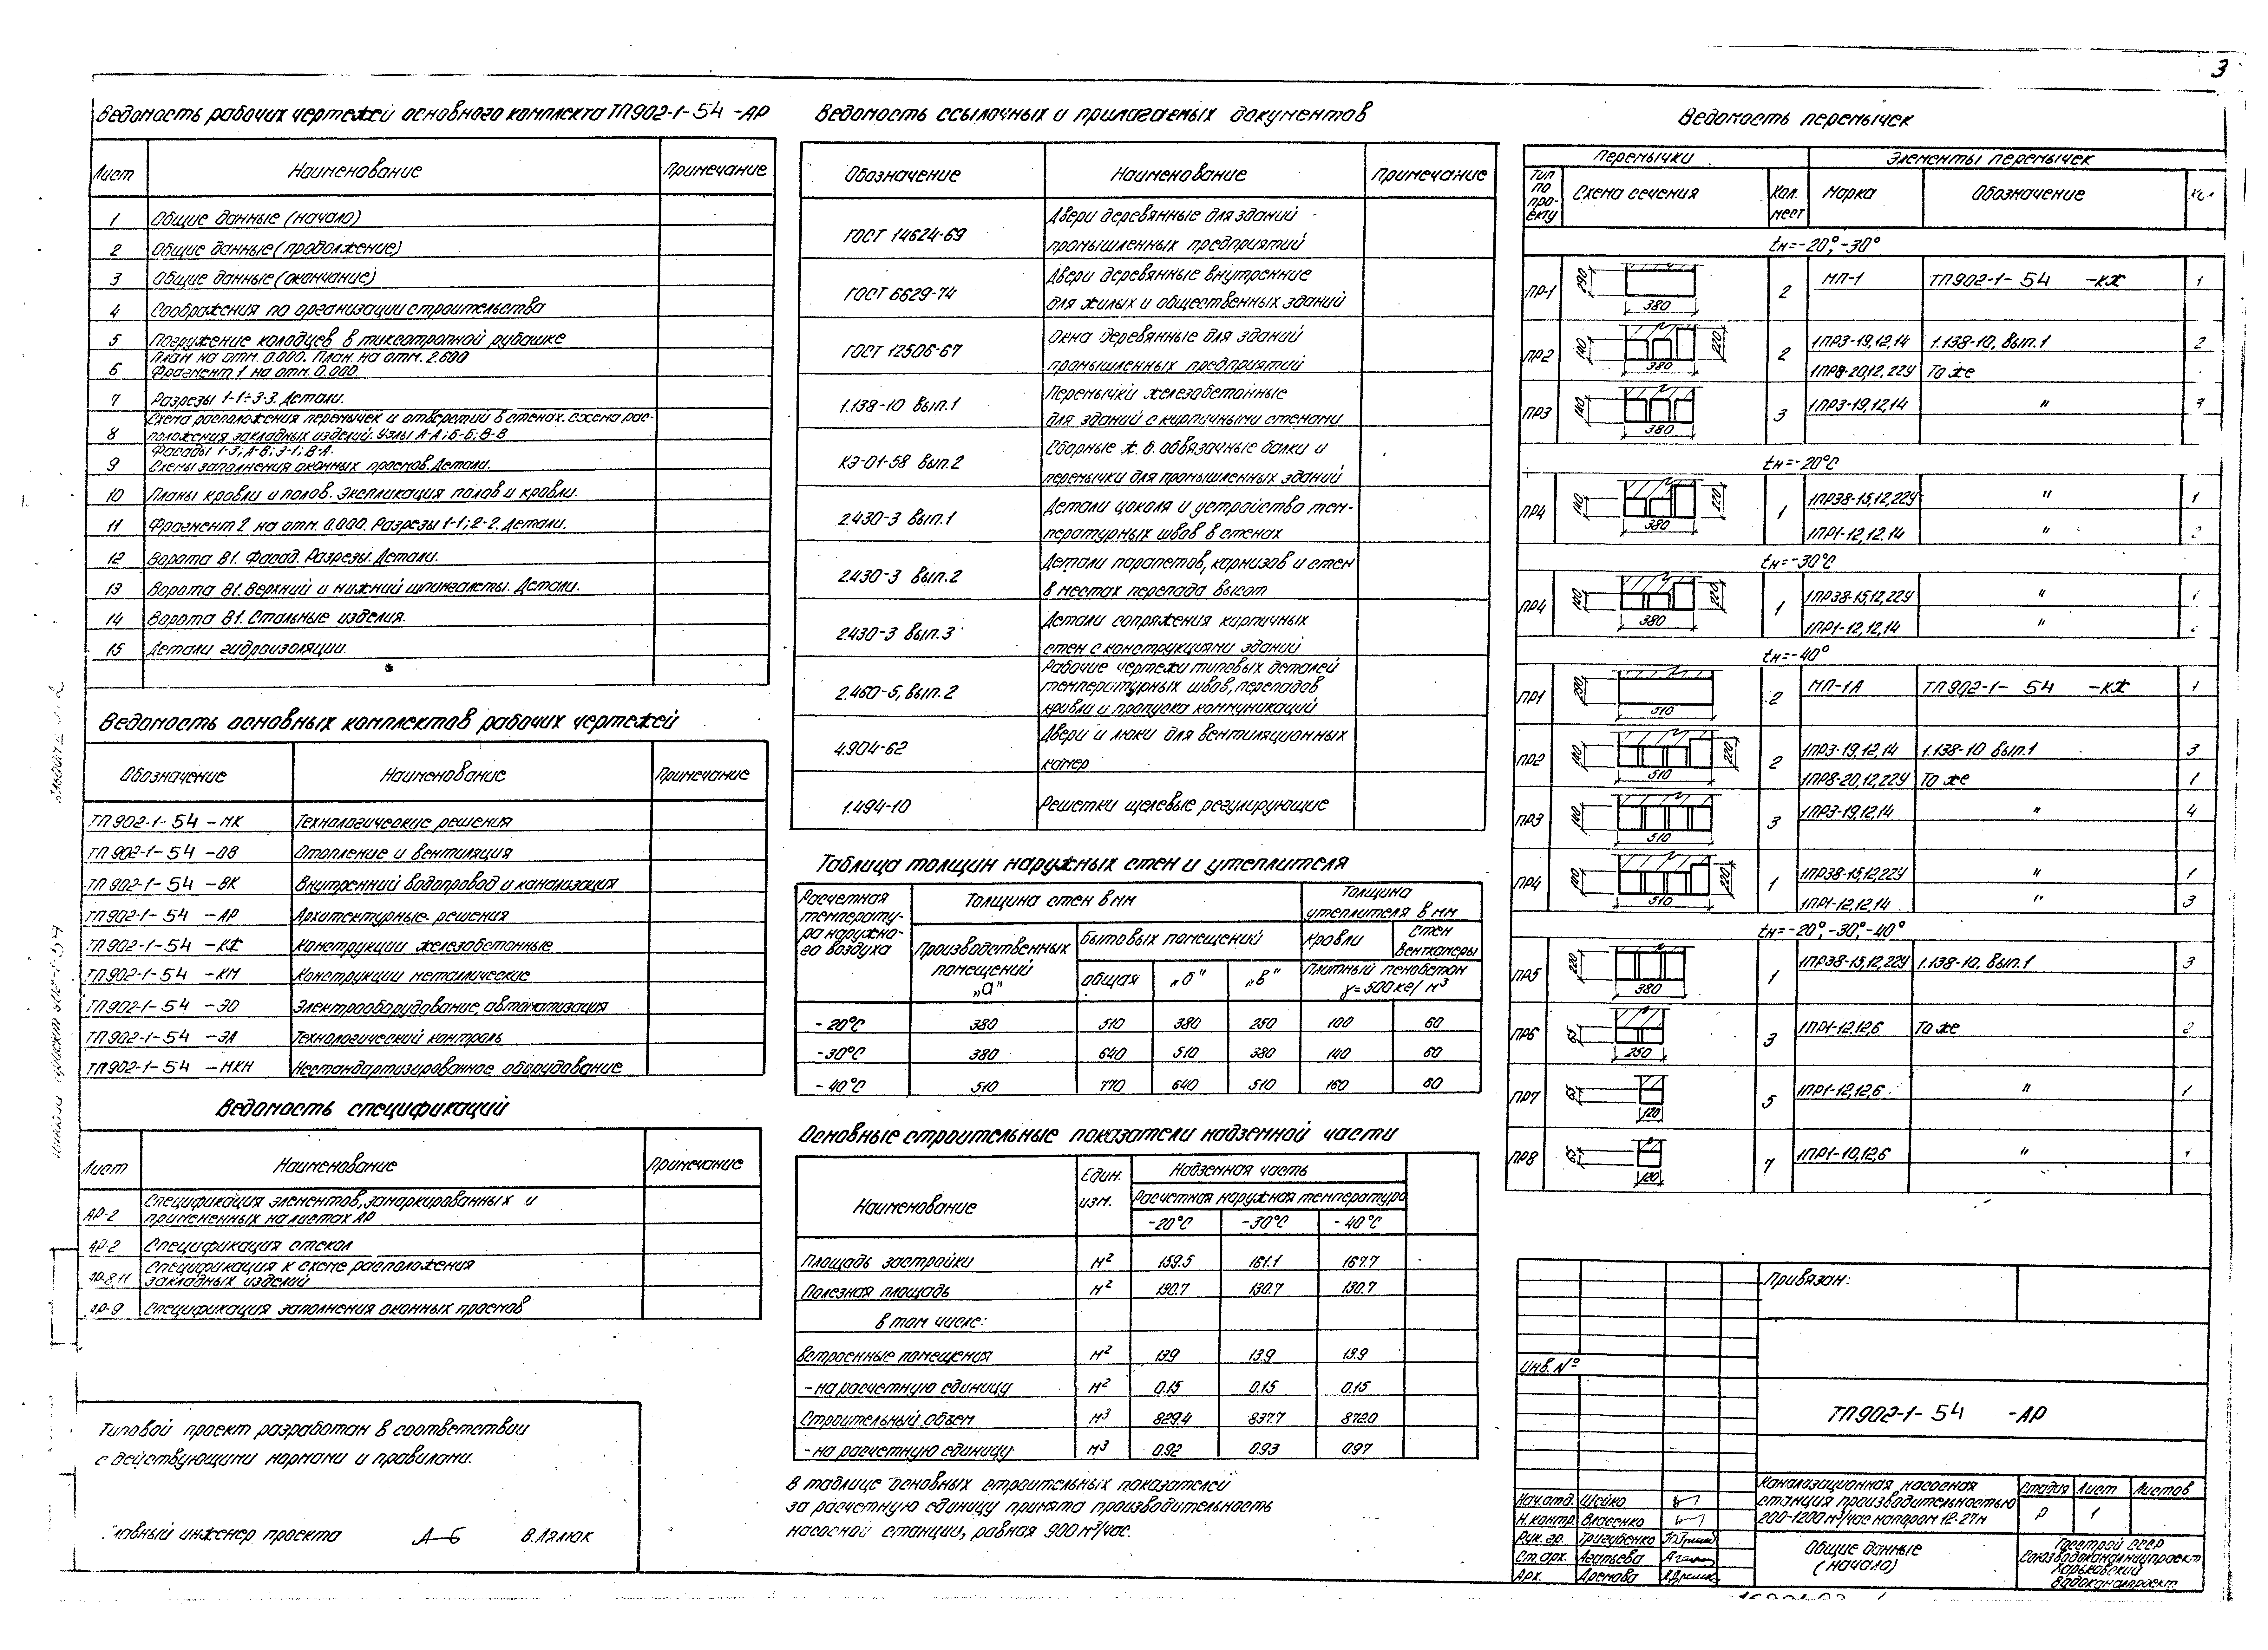 3
Ведомость рабочих чертежей основного комплекта ТП902-1-54 -АР
Лист Наименование Примечание
1 Общие данные (начало)
2 Общие данные (продолжение)
3 Общие данные (окончание)
4 Соображения по организации строительства
5 Погружение колодцев в тиксотропной рубашке
6 План на отм. 0.000. План на отм. 2.600
Фрагмент 1 на отм. 0.000.
7 Разрезы 1-1÷3-3. Детали.
8 Схема расположения перемычек и отверстий в стенах. Схема рас-
положения закладных изделий. Узлы А-А; Б-Б; В-В
9 Фасады 1-3; А-В; 3-1; В-А.
Схемы заполнения оконных проемов. Детали.
10 Планы кровли и полов. Экспликация полов и кровли.
11 Фрагмент 2 на отм. 0.000. Разрезы 1-1; 2-2. Детали.
12 Ворота В1. Фасад. Разрезы. Детали.
13 Ворота В1. Верхний и нижний шпингалеты. Детали.
14 Ворота В1. Стальные изделия.
15 Детали гидроизоляции.
Ведомость основных комплектов рабочих чертежей
Обозначение Наименование Примечание
ТП 902-1-54 -НК Технологические решения
ТП 902-1-54 -ОВ Отопление и вентиляция
ТП 902-1-54 -ВК Внутренний водопровод и канализация
ТП 902-1-54 -АР Архитектурные решения
ТП902-1-54 -КЖ Конструкции железобетонные
ТП902-1-54 -КМ Конструкции металлические
ТП902-1-54 -ЭО Электрооборудование, автоматизация
ТП902-1-54 -ЭА Технологический контроль
ТП902-1-54 -МКН Нестандартизированное оборудование
Ведомость спецификаций
Лист Наименование Примечание
АР-2 Спецификация элементов, замаркированных и
примененных на листах АР
АР-2 Спецификация стекол
АР-8,11 Спецификация к схеме расположения
закладных изделий
АР-9 Спецификация заполнения оконных проемов
Типовой проект разработан в соответствии
с действующими нормами и правилами.
Главный инженер проекта В. Лялюк
Ведомость ссылочных и прилагаемых документов
Обозначение Наименование Примечание
ГОСТ 14624-69 Двери деревянные для зданий
промышленных предприятий
ГОСТ 6629-74 Двери деревянные внутренние
для жилых и общественных зданий
ГОСТ 12506-67 Окна деревянные для зданий
промышленных предприятий
1.138-10 Вып.1 Перемычки железобетонные
для зданий с кирпичными стенами
КЭ-01-58 вып.2 Сборные ж.б. обвязочные балки и
перемычки для промышленных зданий
2.430-3 Вып.1 Детали цоколя и устройство тем-
пературных швов в стенах
2.430-3 Вып.2 Детали парапетов, карнизов и стен
в местах перепада высот
2.430-3 Вып.3 Детали сопряжения кирпичных
стен с конструкциями зданий
2.460-5, вып.2 Рабочие чертежи типовых деталей
температурных швов, перепадов
кровли и пропуска коммуникаций
4.904-62 Двери и люки для вентиляционных
камер
1.494-10 Решетки щелевые регулирующие
Таблица толщин наружных стен и утеплителя
Расчетная температу-ра наружно-го воздуха Толщина стен в мм Толщина утеплителя в мм
Производственных помещений „а" Бытовых помещений Кровли Стен венткамеры
общая „б" „в" Плитный пенобетон γ=500кг/м³
-20°С 380 510 380 250 100 60
-30°С 380 640 510 380 140 60
-40°С 510 770 640 510 160 60
Основные строительные показатели надземной части
Наименование Един. изм. Надземная часть
Расчетная наружная температура
-20°С -30°С -40°С
Площадь застройки м² 159.5 161.1 167.7
Полезная площадь м² 130.7 130.7 130.7
в том числе:
Встроенные помещения м² 13.9 13.9 13.9
- на расчетную единицу м² 0.15 0.15 0.15
Строительный объем м³ 829.4 837.7 872.0
- на расчетную единицу м³ 0.92 0.93 0.97
В таблице основных строительных показателей
за расчетную единицу принята производительность
насосной станции, равная 900 м³/час.
Ведомость перемычек
Перемычки Элементы перемычек
Тип по про-екту Схема сечения Кол. мест Марка Обозначение Кол
tн=-20°,-30°
ПР-1 290 380 2 МП-1 ТП902-1-54 -КЖ 1
ПР2 140 220 380 2 1ПР3-19,12,14 1.138-10, Вып.1 2
1ПР8-20,12,22У То же
ПР3 140 380 3 1ПР3-19,12,14 " 3
tн=-20°С
ПР4 140 220 380 1 1ПР38-15,12,22У " 1
1ПР1-12,12,14 " 2
tн=-30°С
ПР4 140 220 380 1 1ПР38-15,12,22У " 1
1ПР1-12,12,14 "
tн=-40°
ПР1 290 510 2 МП-1А ТП902-1-54 -КЖ 1
ПР2 140 220 510 2 1ПР3-19,12,14 1.138-10 Вып.1 3
1ПР8-20,12,22У То же 1
ПР3 140 510 3 1ПР3-19,12,14 " 4
ПР4 140 220 510 1 1ПР38-15,12,22У " 1
1ПР1-12,12,14 " 3
tн=-20°,-30°,-40°
ПР5 220 380 1 1ПР38-15,12,22У 1.138-10, Вып.1 3
ПР6 65 250 3 1ПР1-12,12,6 То же 2
ПР7 65 120 5 1ПР1-12,12,6 " 1
ПР8 65 120 7 1ПР1-10,12,6 " 1
Привязан:
Инв. №
ТП902-1-54 -АР
Нач.отд. Шейко
Н.контр. Власенко
Рук. гр. Тригубенко
Ст. арх. Агапьева
Арх.
Канализационная насосная
станция производительностью
200-1200 м³/час напором 12-27м
Стадия Лист Листов
Р 1
Общие данные
(начало)
Госстрой СССР
Союзводоканалниипроект
Харьковский
Водоканалпроект